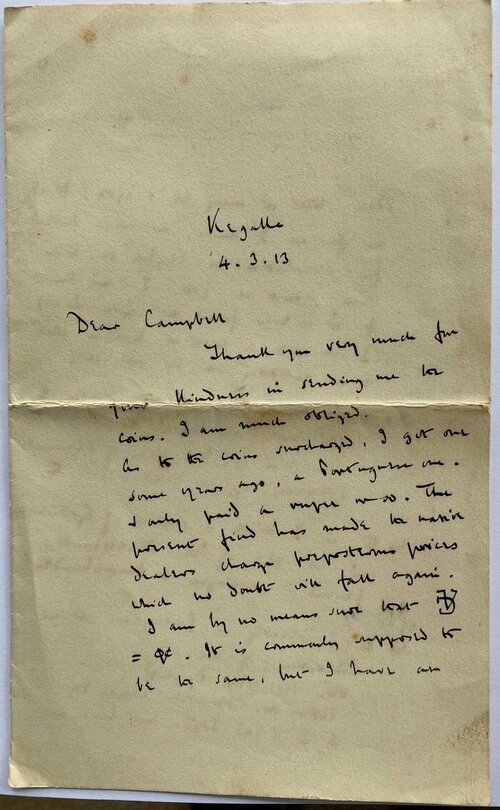 Kegalla
4.3.13
Dear Campbell
Thank you very much for
your kindness in sending me the
coins. I am much obliged.
As to the coins surcharged, I got one
some years ago, a Portuguese one.
& only paid a rupee or so. The
present find has made the native
dealers charge preposterous prices
which no doubt will fall again.
I am by no means sure that
= . It is commonly supposed to
be the same, but I have an